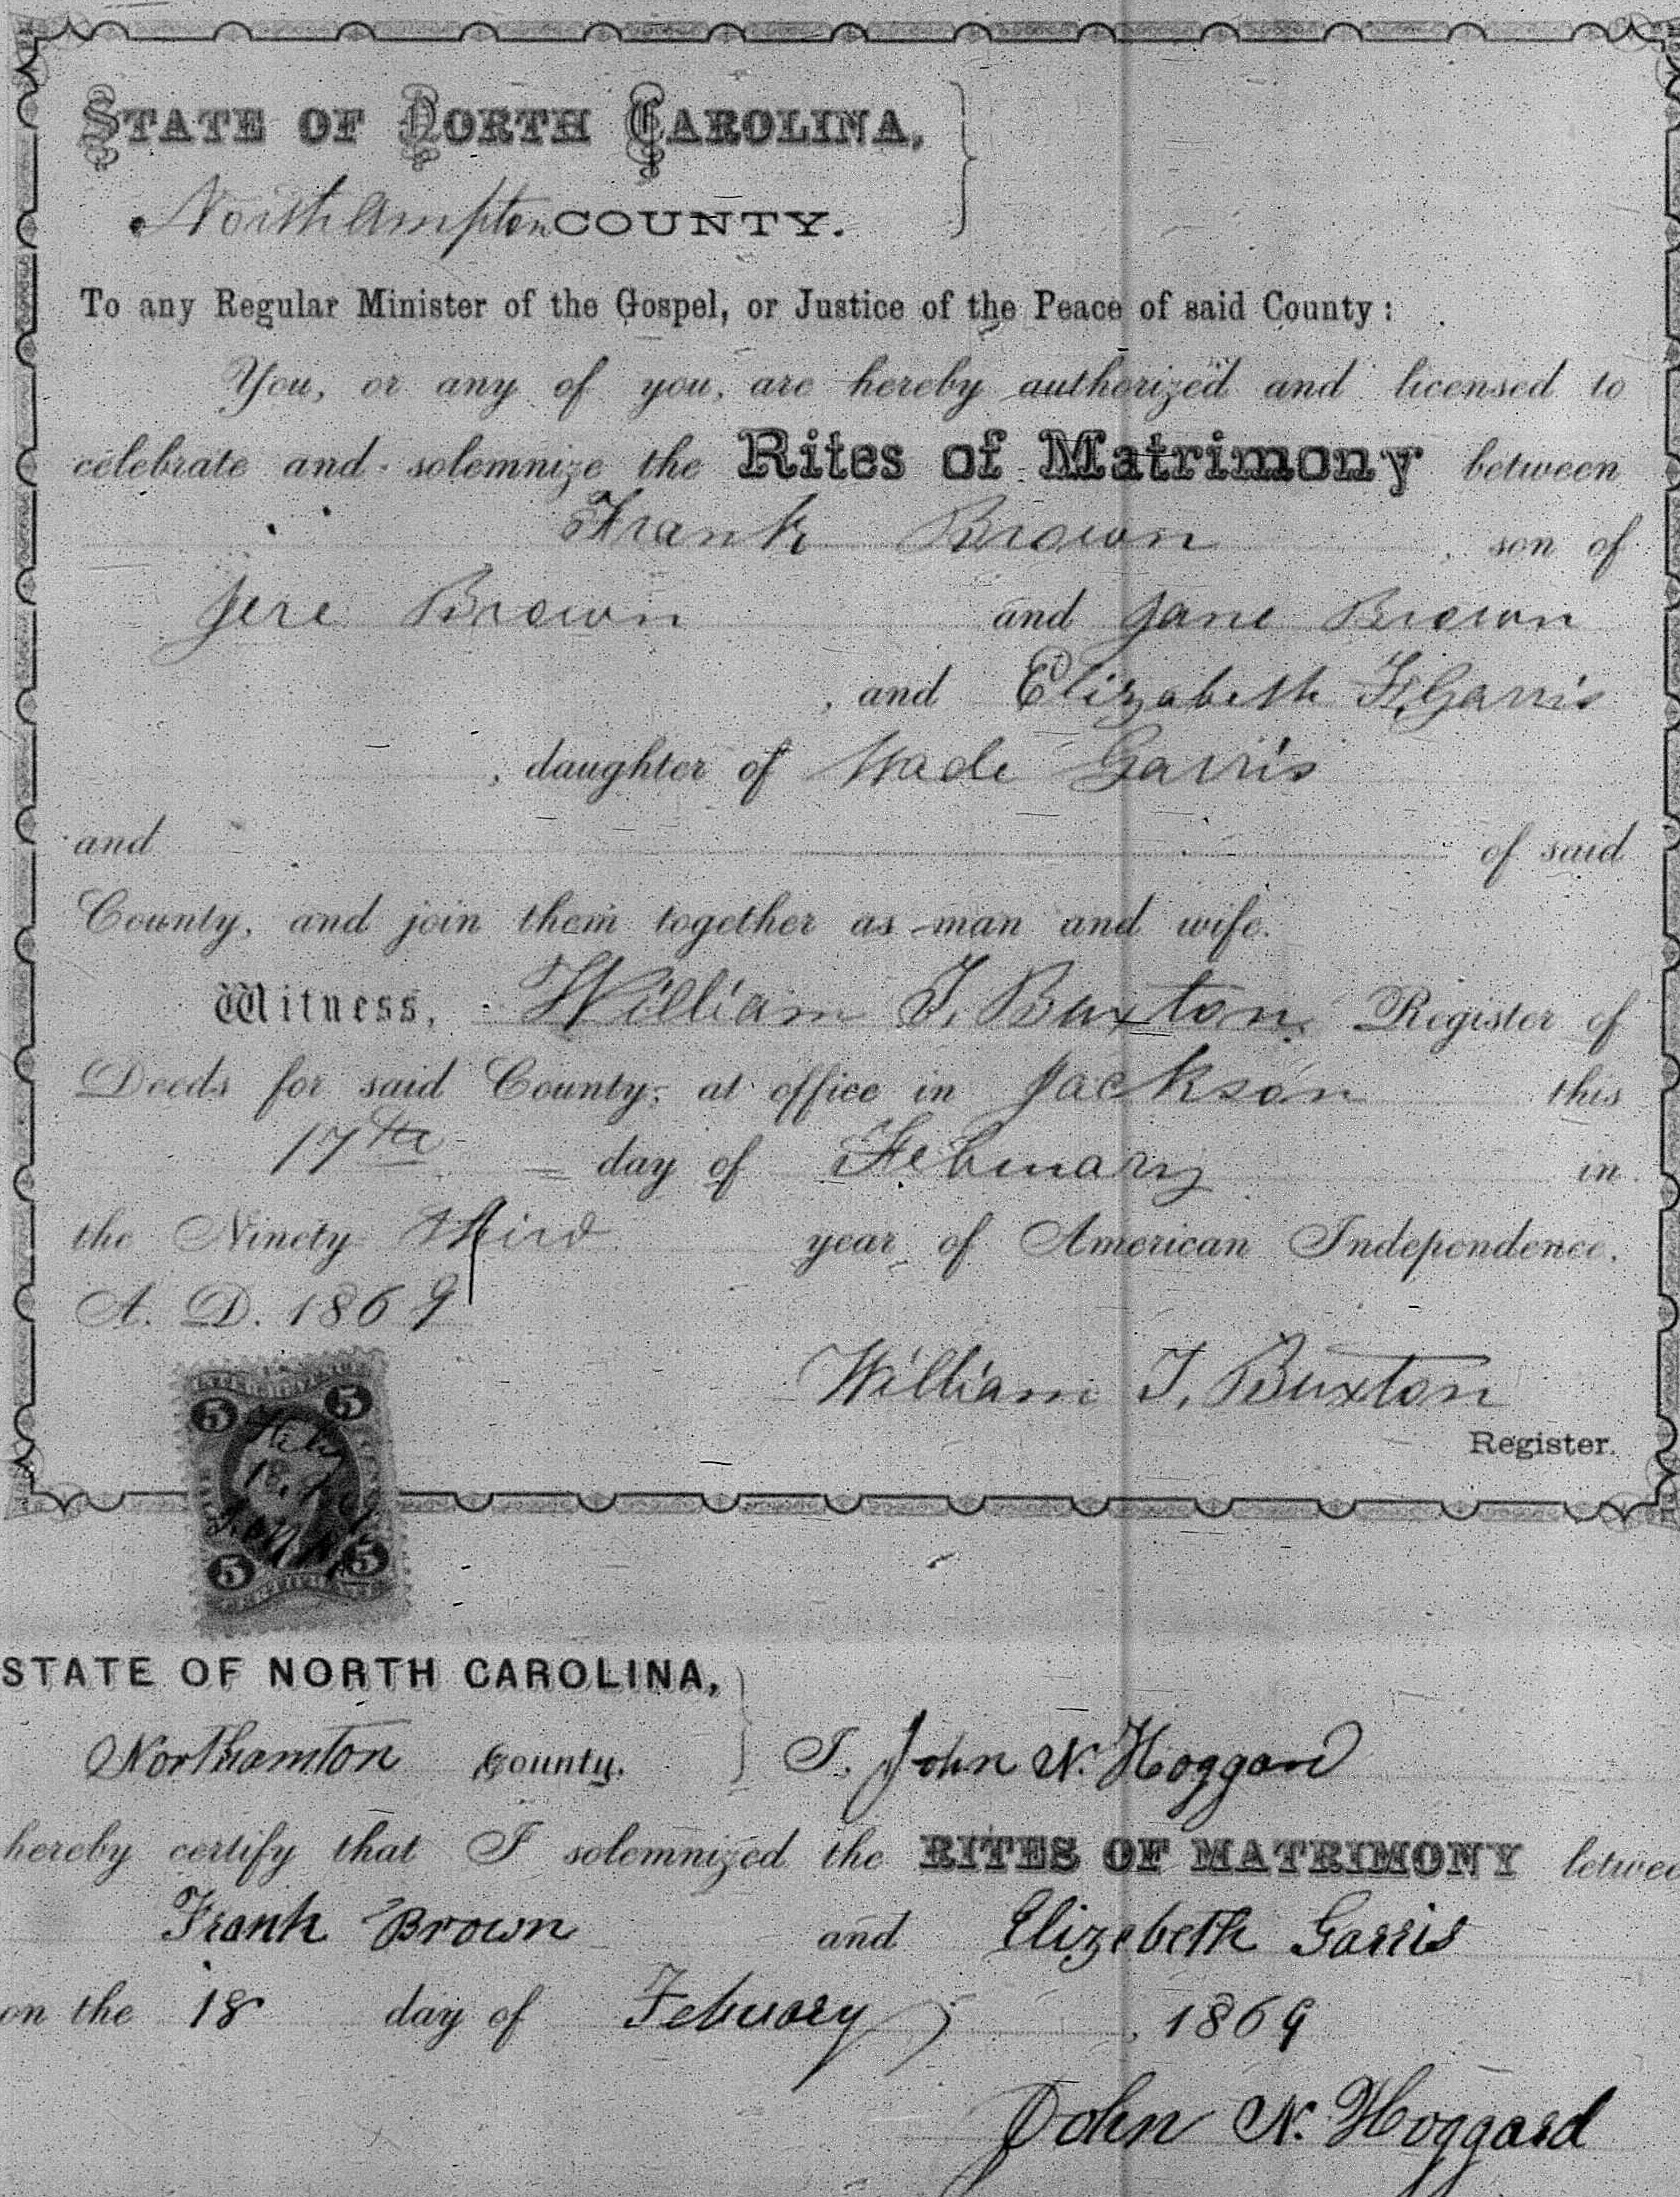 STATE OF NORTH CAROLINA,
Northampton COUNTY.
To any Regular Minister of the Gospel, or Justice of the Peace of said County:
You, or any of you, are hereby authorized and licensed to
celebrate and solemnize the Rites of Matrimony between
Frank Brown, son of
Jere Brown and Jane Brown
, and Elizabeth F. Garris
, daughter of Wade Garris
and of said
County, and join them together as man and wife.
Witness, William T. Buxton, Register of
Deeds for said County, at office in Jackson this
17th day of February in
the Ninety third year of American Independence,
A. D. 1869
William T. Buxton
Register.
5 5
Feby
18,
5 5
STATE OF NORTH CAROLINA,
Northamton County. I, John N. Hoggard
hereby certify that I solemnized the RITES OF MATRIMONY betwee
Frank Brown and Elizebeth Garris
on the 18 day of Febuary, 1869
John N. Hoggard